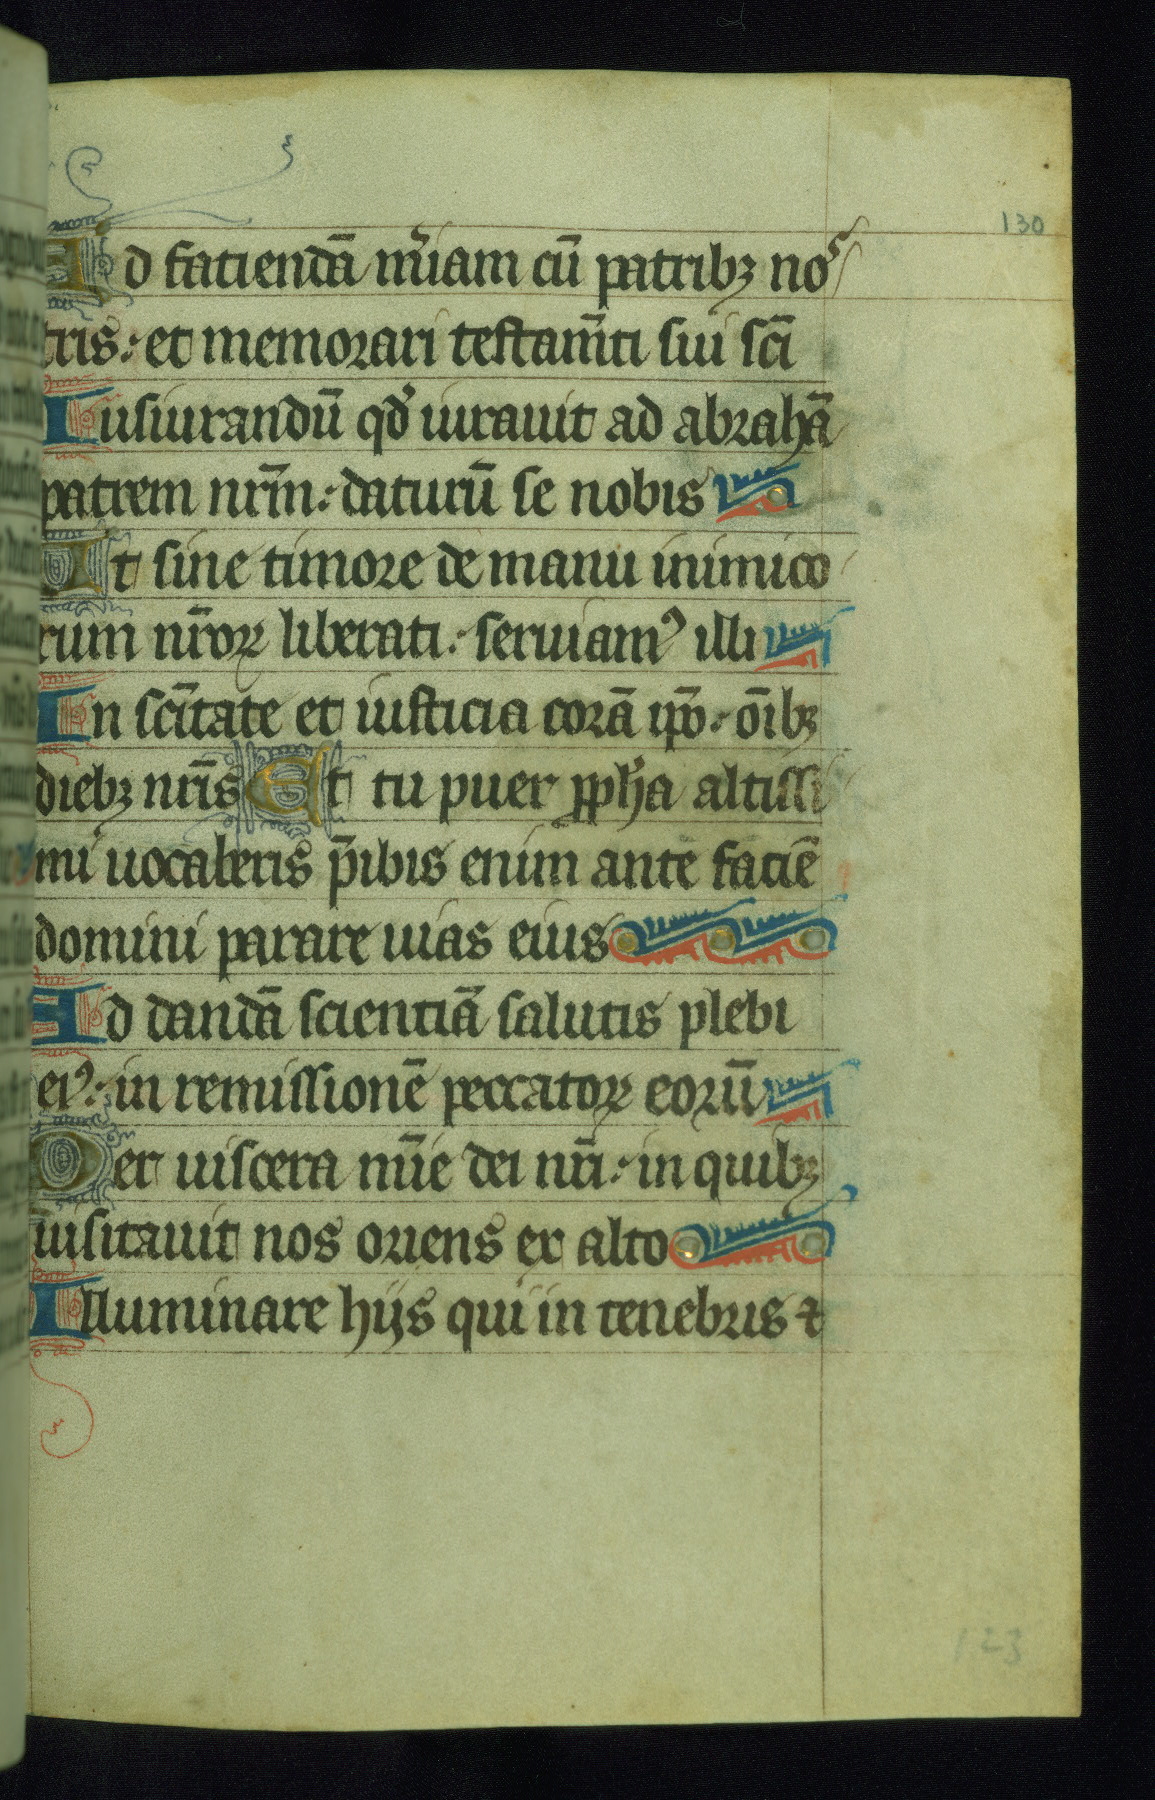 130
Ad faciendā mīam cū patribꝫ nos
tris: et memorari testam̄ti sui sc̄i
Iusiurandū qd̓ iurauit ad abrahā
patrem nr̄m: daturū se nobis
Ut sine timore de manu inimico
rum nr̄oꝝ liberati: seruiamꝰ illi
In sc̄itate et iusticia corā ip̄o: oīb̄ꝫ
diebꝫ nr̄is Et tu puer ꝓph̄a altissi
mi uocaberis p̄ibis enim ante faciē
domini parare uias eius
Ad dandā scientiā salutis plebi
eiꝰ: in remissionē peccatoꝝ eorū
Per uiscera mīe dei nr̄i: in quibꝫ
uisitauit nos oriens ex alto
Illuminare hijs qui in tenebris ⁊
123